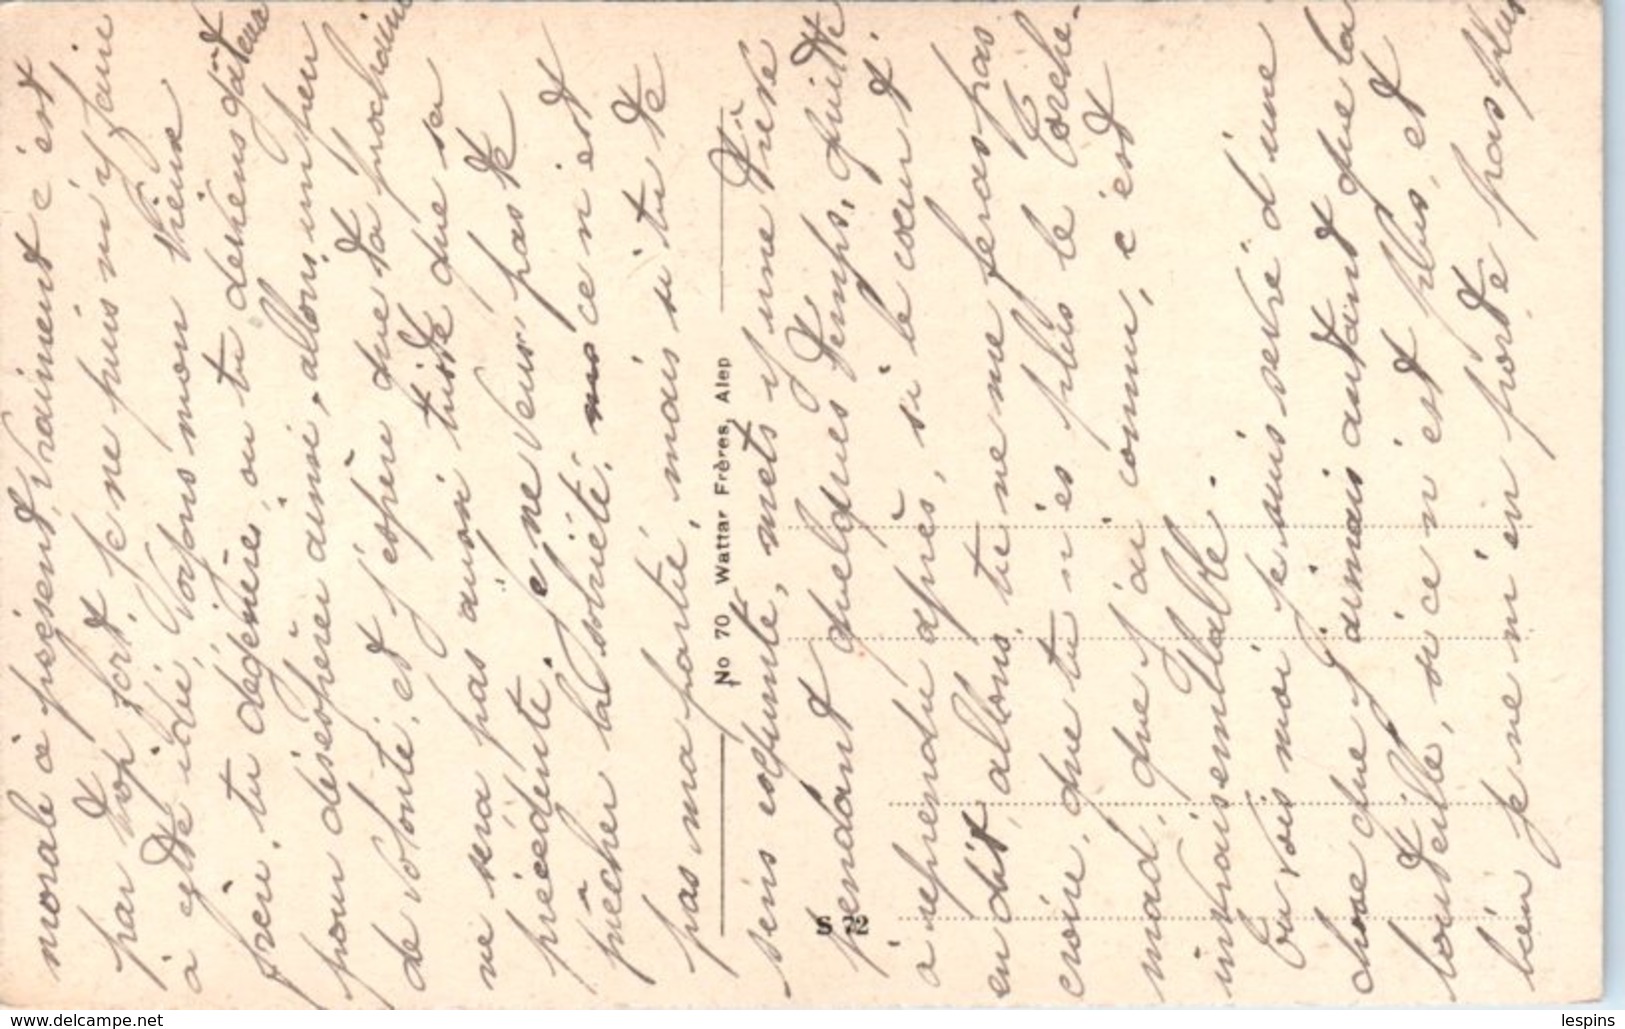 morale à présent, vraiment c'est
par trop fort. Je ne puis m'y faire
à cette idée, voyons mon vieux
frère, tu dégénères, ou tu deviens gâteux
pour désespérer ainsi, allons un peu
de volonté, et j'espère que ta prochaine
ne sera pas aussi triste que ta
précédente. Je ne veux pas te
prêcher la sobriété, ce n'est
pas ma partie, mais si tu te
sens esquinté, mets y une trêve
pendant quelques temps, quitte
à reprendre après, si le cœur t'
en dit, allons, tu ne me feras pas
croire, que tu n'es plus le
que j'ai connu, c'est
invraisemblable.
Vois moi je suis sevré d'une
chose que j'aimais autant que la
bouteille, si ce n'est plus, et
bien je ne m'en porte pas plus
No 70 Wattar Frères, Alep
S 72
www.delcampe.net
lespins